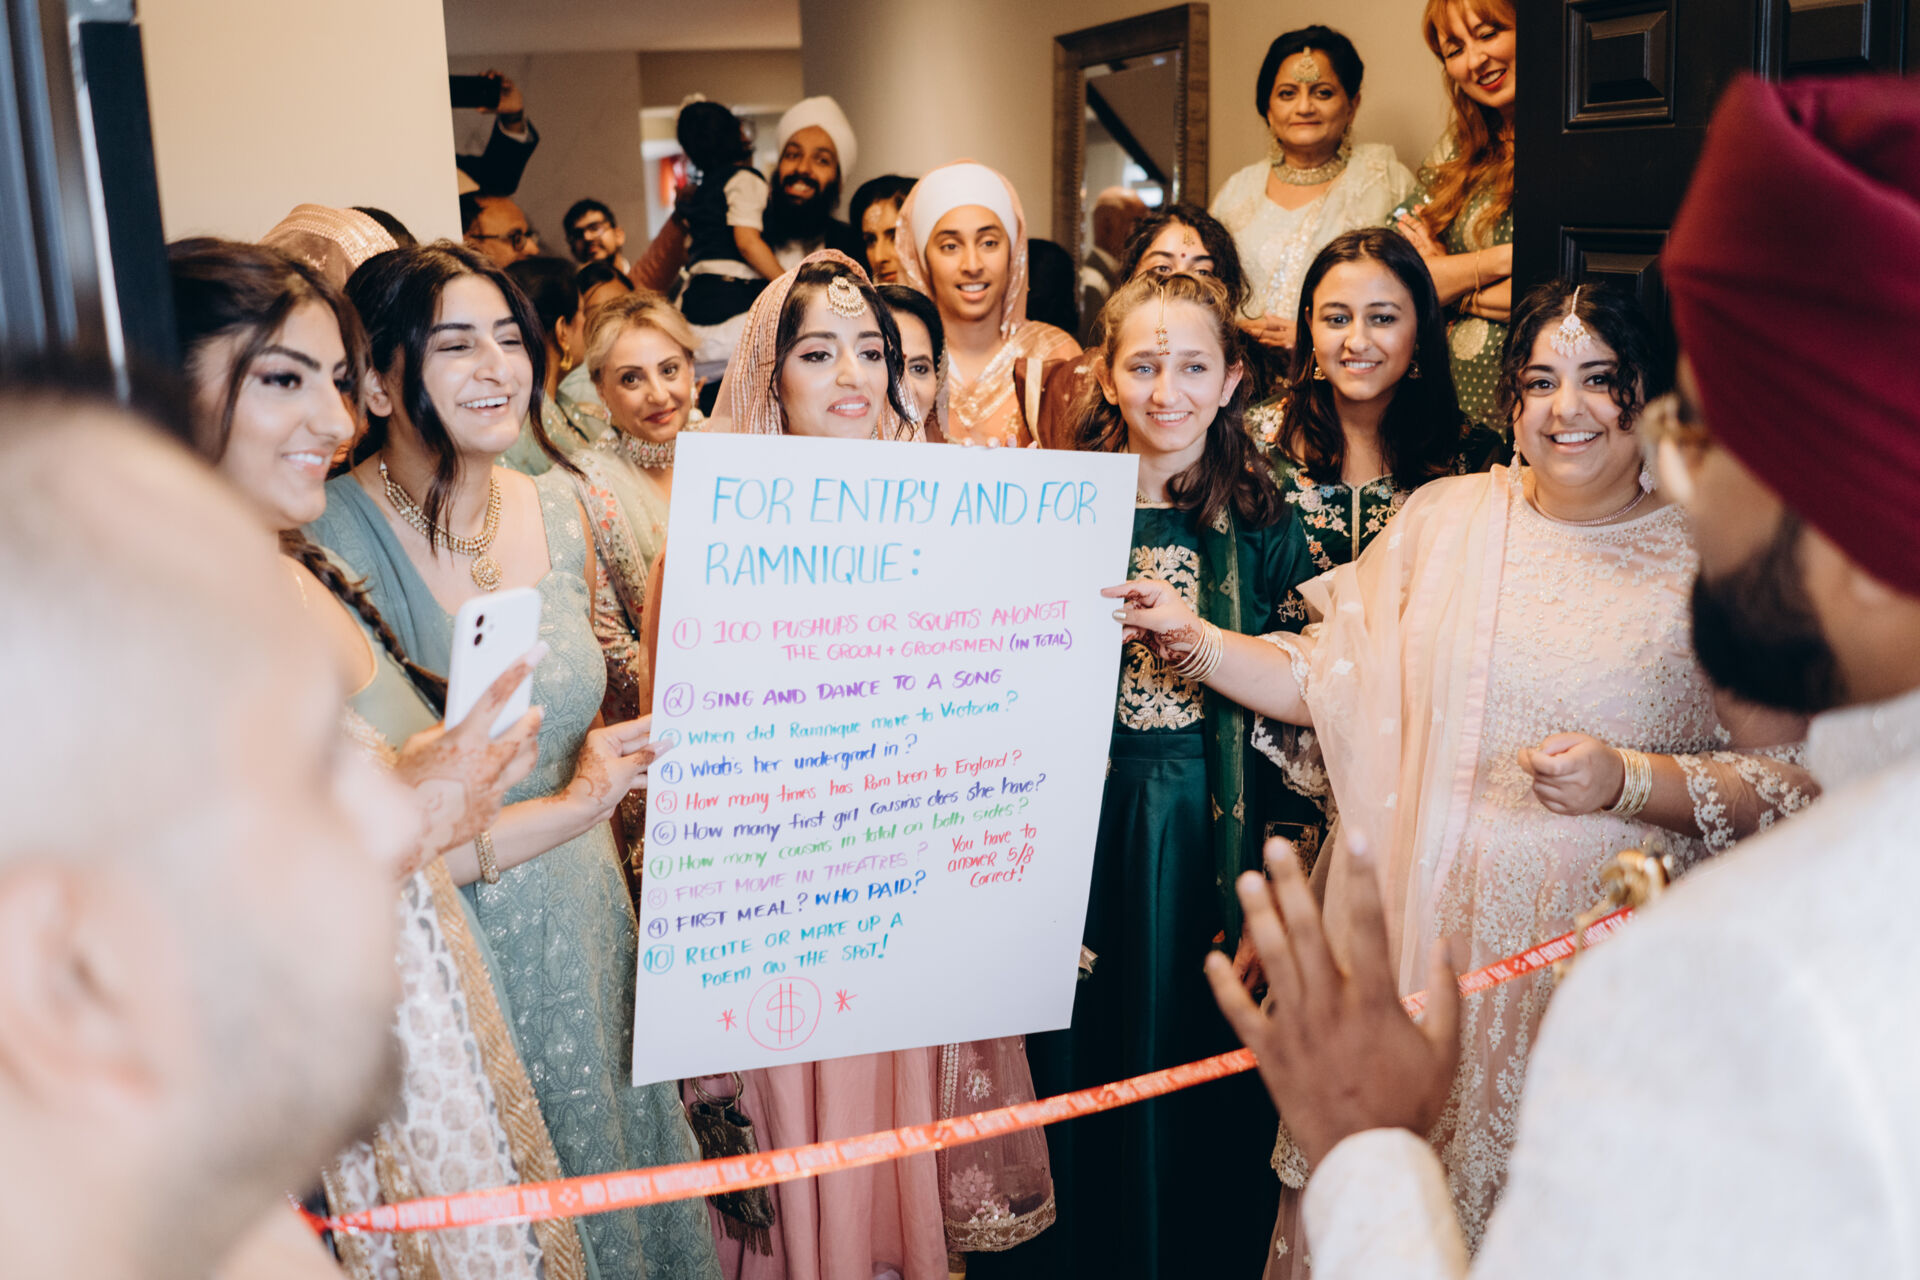 FOR ENTRY AND FOR
RAMNIQUE:
① 100 PUSHUPS OR SQUATS AMONGST
THE GROOM + GROOMSMEN (IN TOTAL)
② SING AND DANCE TO A SONG
③ When did Ramnique move to Victoria?
④ What's her undergrad in?
⑤ How many times has Ram been to England?
⑥ How many first girl cousins does she have?
⑦ How many cousins in total on both sides?
⑧ FIRST MOVIE IN THEATRES?
⑨ FIRST MEAL? WHO PAID?
You have to
answer 5/8
Correct!
⑩ RECITE OR MAKE UP A
POEM ON THE SPOT!
* $ *
NO ENTRY WITHOUT TAX NO ENTRY WITHOUT TAX NO ENTRY WITHOUT TAX